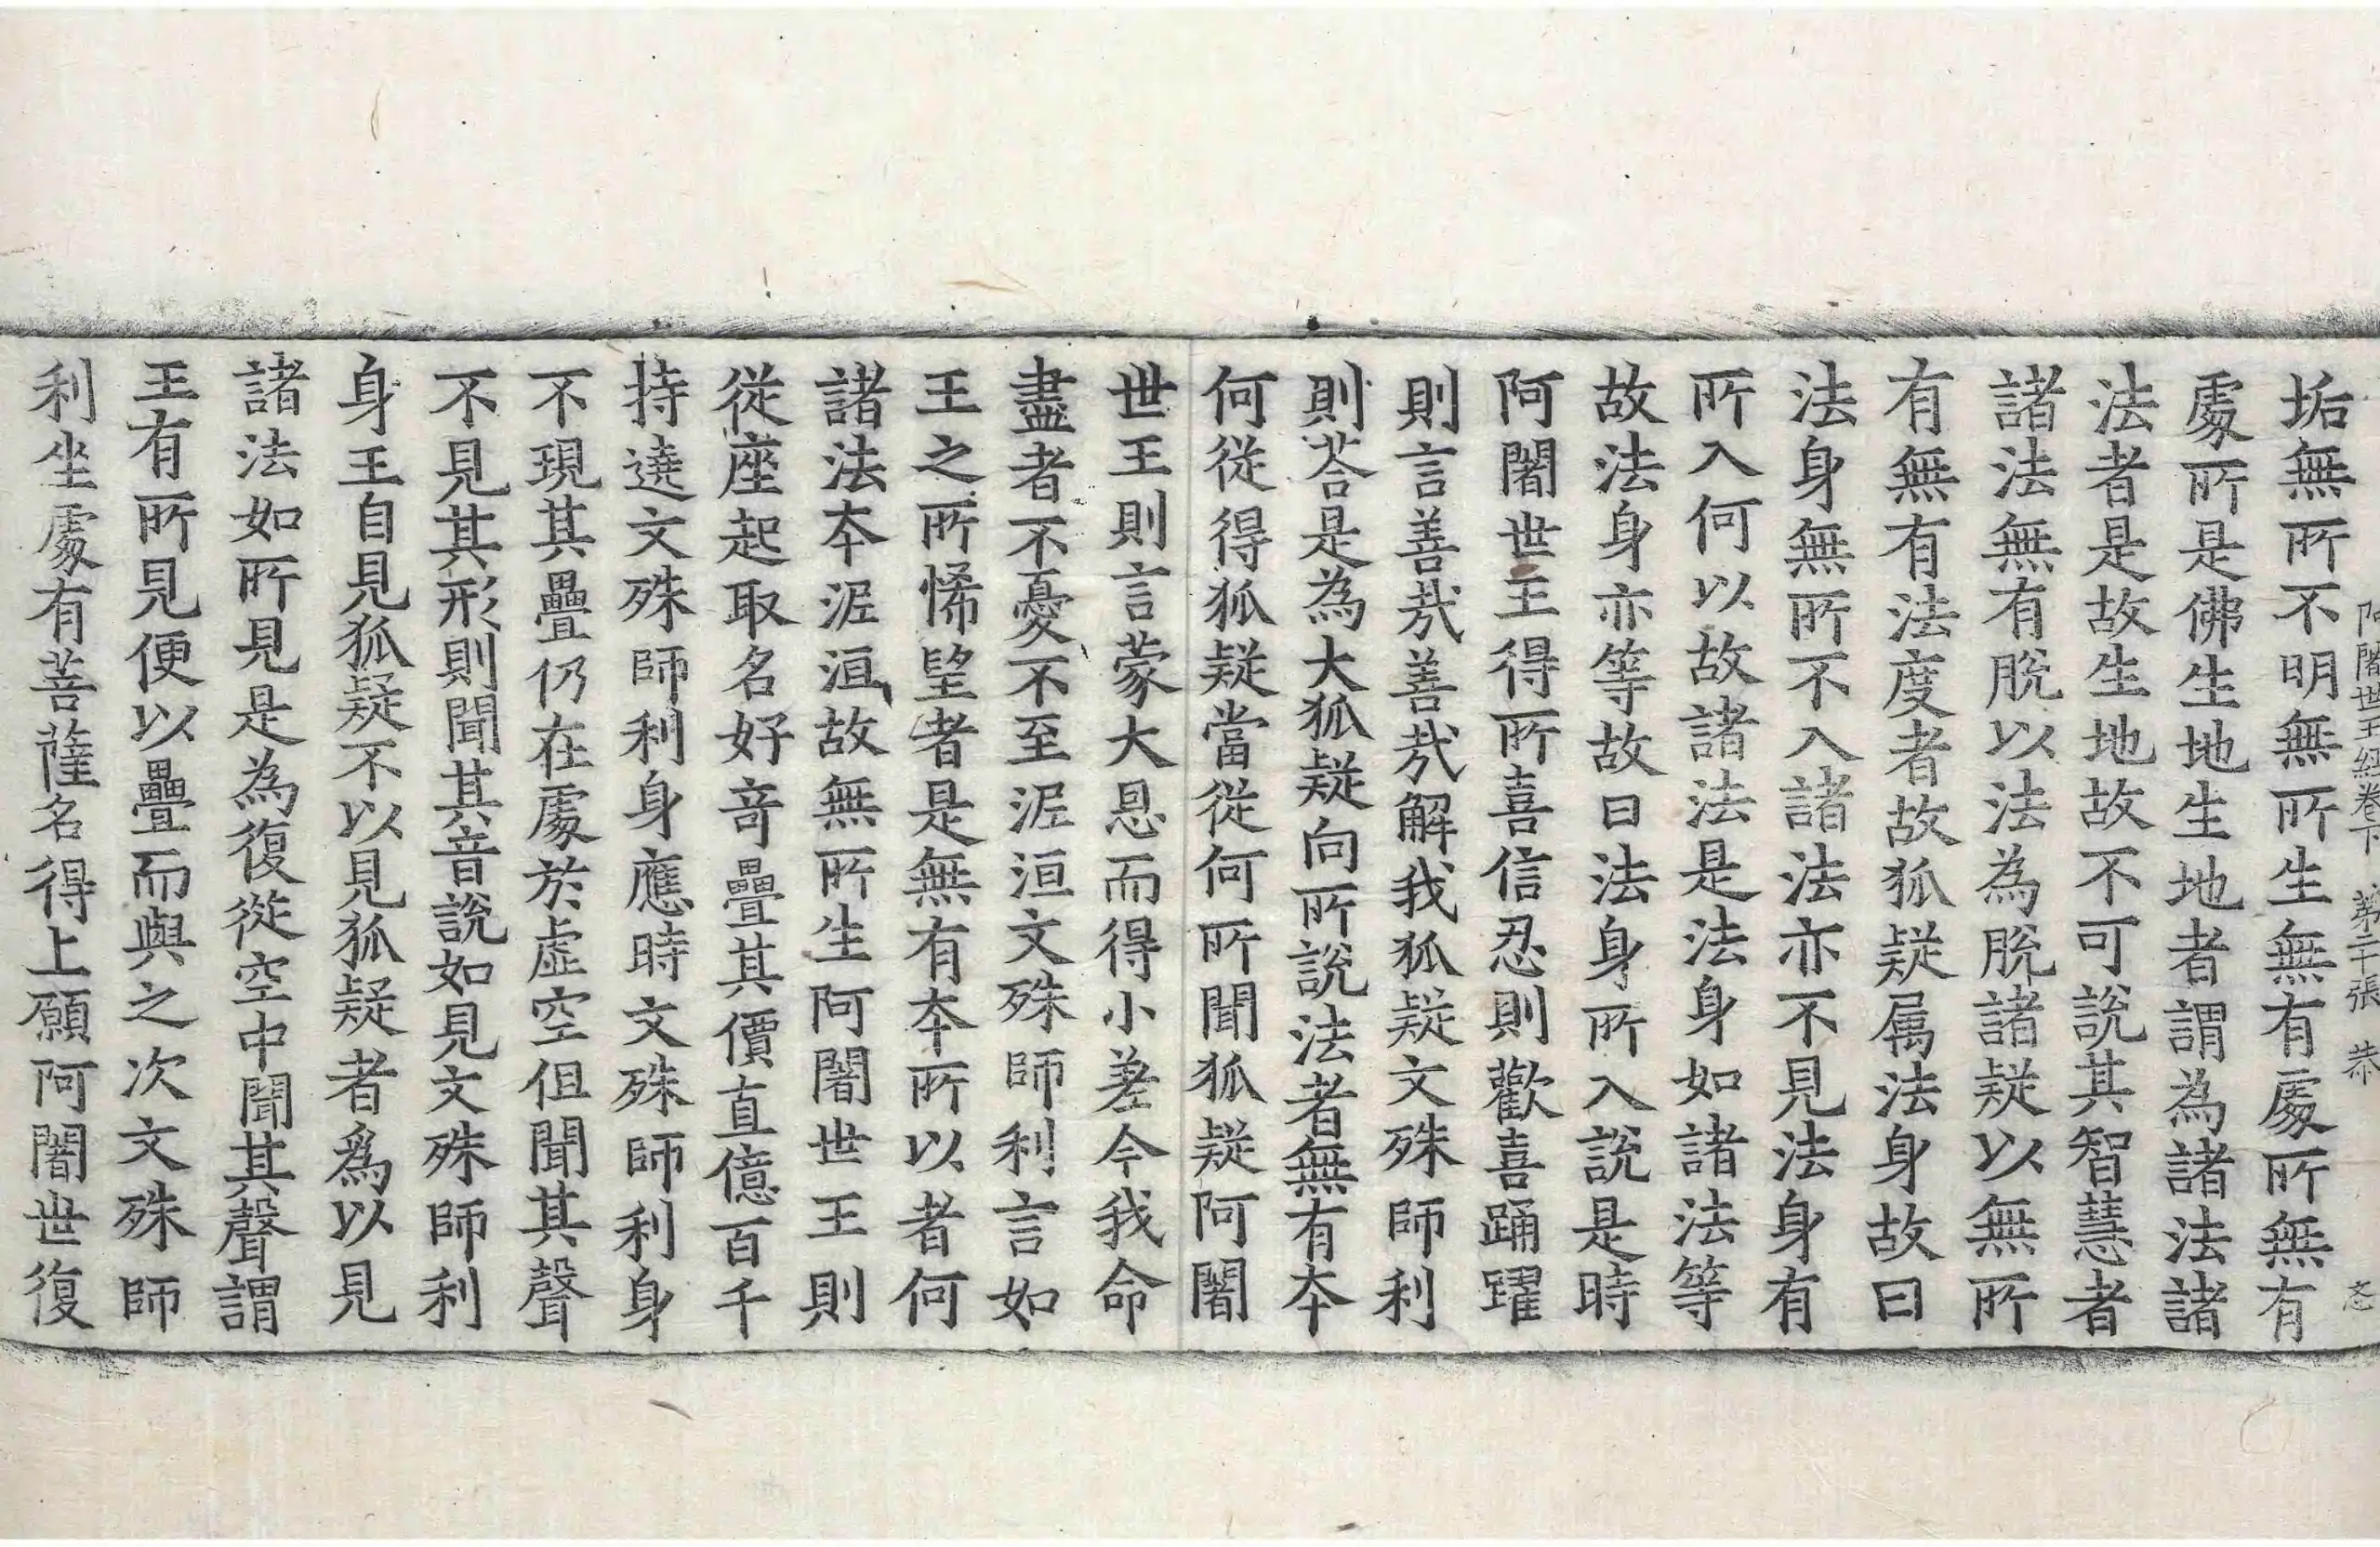 阿闍世王經卷下 第二十張 恭
垢無所不明無所生無有處所無有
處所是佛生地生地者謂為諸法諸
法者是故生地故不可說其智慧者
諸法無有脫以法為脫諸疑以無所
有無有法度者故狐疑属法身故曰
法身無所不入諸法亦不見法身有
所入何以故諸法是法身如諸法等
故法身亦等故曰法身所入說是時
阿闍世王得所喜信忍則歡喜踊躍
則言善㢤善㢤解我狐疑文殊師利
則荅是為大狐疑向所說法者無有本
何從得狐疑當從何所聞狐疑阿闍
世王則言蒙大恩而得小差今我命
盡者不憂不至泥洹文殊師利言如
王之所悕望者是無有本所以者何
諸法本泥洹故無所生阿闍世王則
從座起取名好竒疊其價直億百千
持遶文殊師利身應時文殊師利身
不現其疊仍在處於虛空但聞其聲
不見其形則聞其音說如見文殊師利
身王自見狐疑不以見狐疑者爲以見
諸法如所見是為復從空中聞其聲謂
王有所見便以疊而與之次文殊師
利坐處有菩薩名得上願阿闍世復